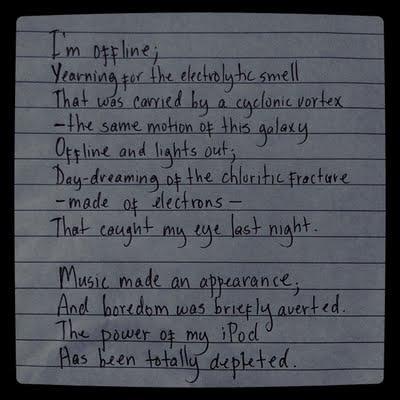 I'm offline;
Yearning for the electrolytic smell
That was carried by a cyclonic vortex
-the same motion of this galaxy
Offline and lights out;
Day-dreaming of the chloritic fracture
-made of electrons-
That caught my eye last night.

Music made an appearance;
And boredom was briefly averted.
The power of my iPod
Has been totally depleted.